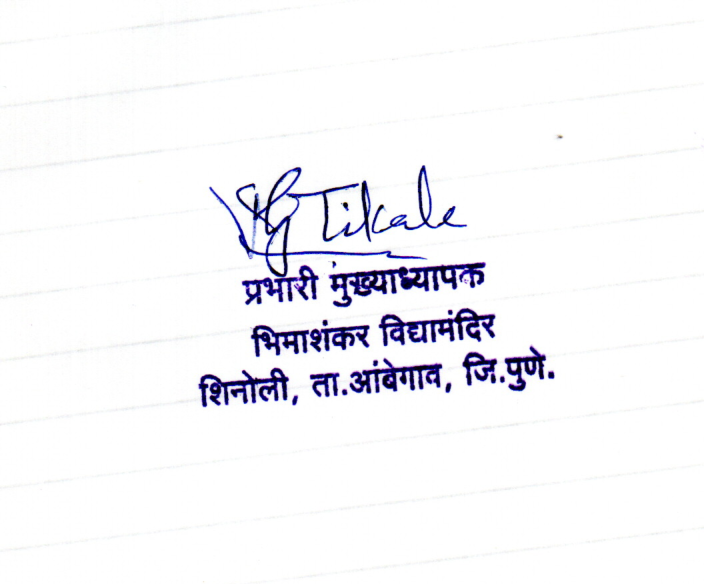 Tikale
प्रभारी मुख्याध्यापक
भिमाशंकर विद्यामंदिर
शिनोली, ता.आंबेगाव, जि.पुणे.